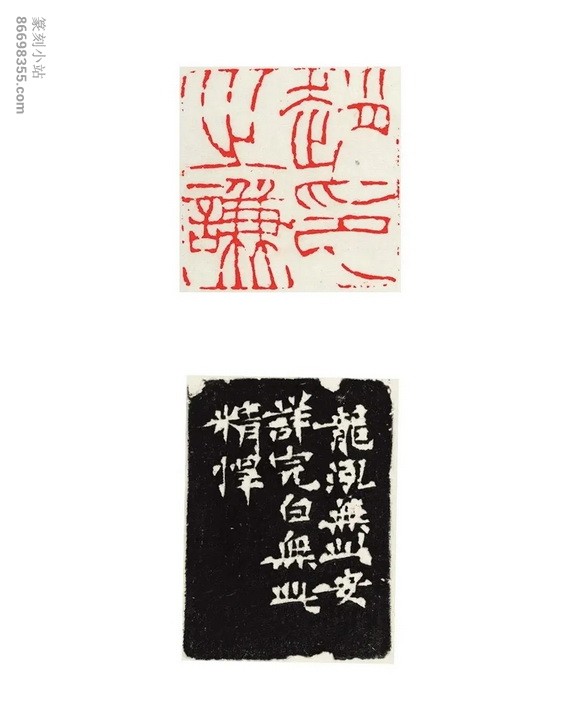 篆刻小站
86698355.com
趙印
之謙
龍泓無此安
詳完白無此
精悍